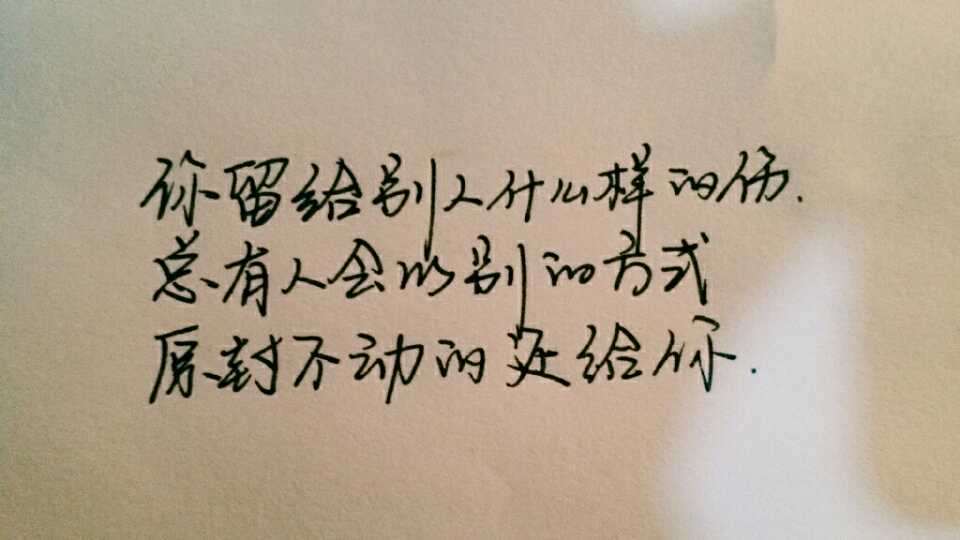 你留给别人什么样的伤.
总有人会以别的方式
原封不动的还给你.